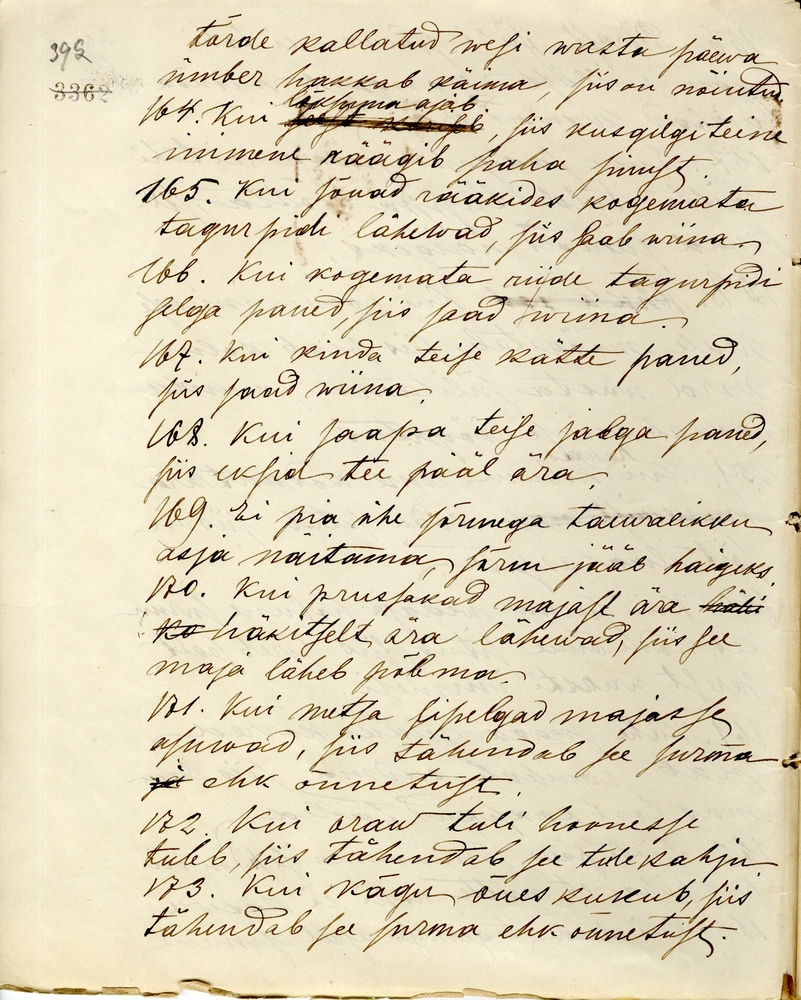 392
3362
tõrde kallatud wesi wasta päewa
ümber hakkab käima, siis on nõiutud.
luksuma ajab
164. Kui, siis kusgilgi teine
inimene räägib paha sinust.
165. Kui sõnad rääkides kogemata
tagurpidi lähewad, siis saab wiina.
166. Kui kogemata riide tagurpidi
selga paned, siis saad wiina.
167. Kui kinda teise kätte paned,
siis saad wiina.
168. Kui saapa teise jalga paned,
siis eksid tee pääl ära.
169. Ei pia ühe sõrmega taewalikku
asja näitama, sõrm jääb haigeks.
170. Kui prussakad majast ära häki
ko häkitselt ära lähewad, siis see
maja läheb põlema.
171. Kui metsa sipelgad majasse
asuwad, siis tähendab see surma
ja ehk õnnetust.
172. Kui oraw tuli hoonesse
tuleb, siis tähendab see tulekahju
173. Kui kägu õues kukub, siis
tähendab see surma ehk õnnetust.